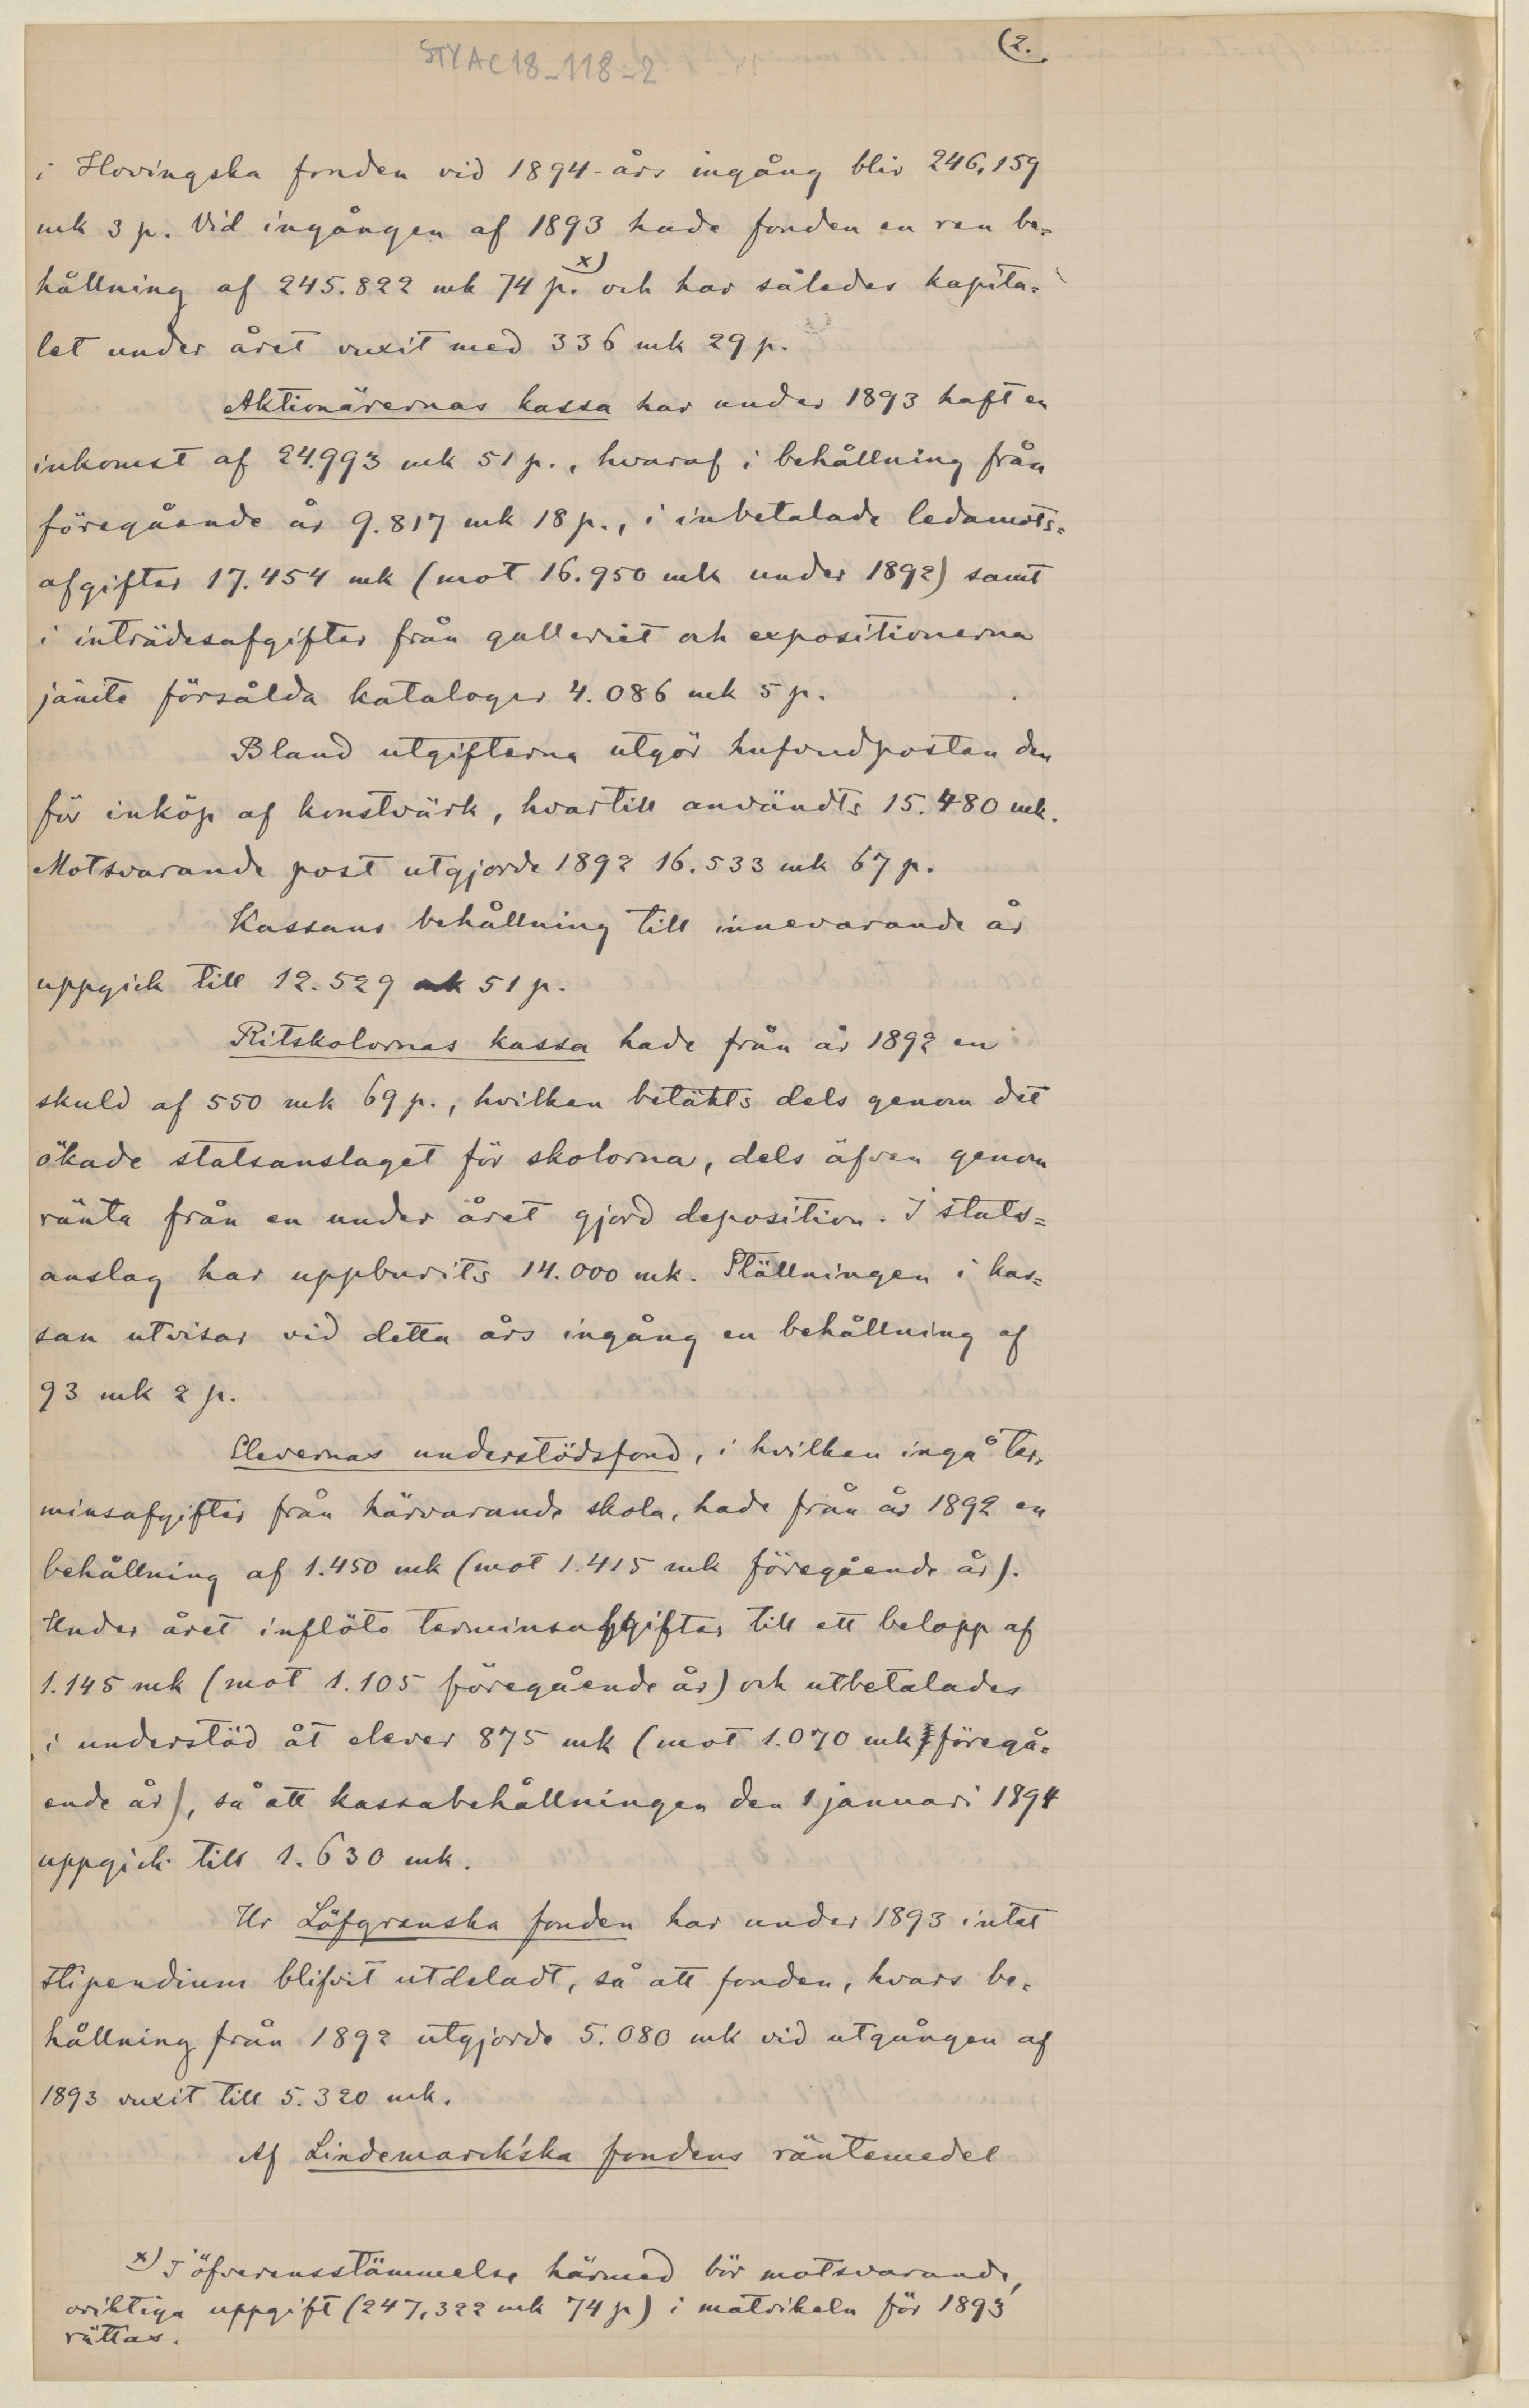 STYAC18_118_2
(2.
i Hovingska fonden vid 1894-års ingång blir 246,159
mk 3 p. Vid ingången af 1893 hade fonden en ren be-
hållning af 245.822 mk 74 p. x) och har således kapita-
let under året vuxit med 336 mk 29 p.
Aktionärernas kassa har under 1893 haft en
inkomst af 24.993 mk 51 p., hvaraf i behållning från
föregående år 9.817 mk 18 p., i inbetalade ledamots-
afgifter 17.454 mk (mot 16.950 mk under 1892) samt
i inträdesafgifter från galleriet och expositionerna
jämte försålda kataloger 4.086 mk 5 p.
Bland utgifterna utgör hufvudposten den
för inköp af konstvärk, hvartill användts 15.480 mk.
Motsvarande post utgjorde 1892 16.533 mk 67 p.
Kassans behållning till innevarande år
uppgick till 12.529 mk 51 p.
Ritskolornas kassa hade från år 1892 en
skuld af 550 mk 69 p., hvilken betäkts dels genom det
ökade statsanslaget för skolorna, dels äfven genom
ränta från en under året gjord deposition. I stats=
anslag har uppburits 14.000 mk. Ställningen i kas=
san utvisar vid detta års ingång en behållning af
93 mk 2 p.
Elevernas understödsfond, i hvilken ingå ter-
minsafgifter från härvarande skola, hade från år 1892 en
behållning af 1.450 mk (mot 1.415 mk föregående år).
Under året inflöto terminsafgifter till ett belopp af
1.145 mk (mot 1.105 föregående år) och utbetalades
i understöd åt elever 875 mk (mot 1.070 mk föregå-
ende år), så att kassabehållningen den 1 januari 1894
uppgick till 1.630 mk.
Ur Löfgrenska fonden har under 1893 intet
stipendium blifvit utdeladt, så att fonden, hvars be-
hållning från 1892 utgjorde 5.080 mk vid utgången af
1893 vuxit till 5.320 mk.
Af Lindemarck'ska fondens räntemedel
x) I öfverensstämmelse härmed bör motsvarande,
oriktiga uppgift (247,322 mk 74 p) i matrikeln för 1893
rättas.